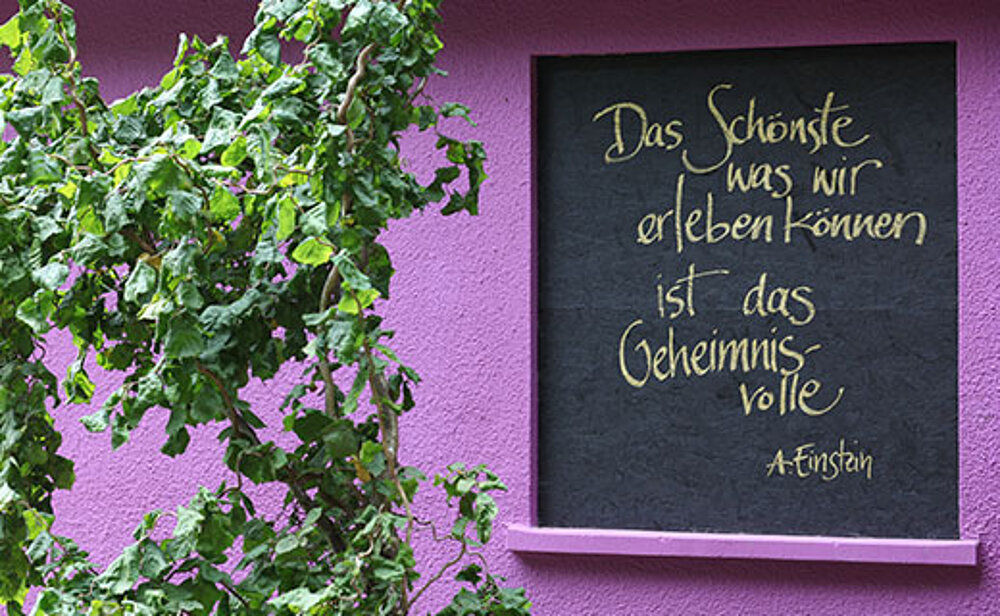 Das Schönste
was wir
erleben können
ist das
Geheimnis-
volle
A. Einstein